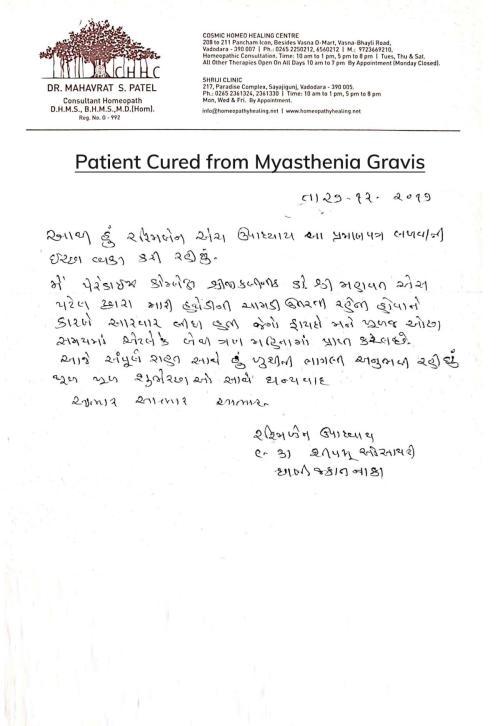 COSMIC HOMEO HEALING CENTRE
208 to 211 Pancham Icon, Besides Vasna D-Mart, Vasna-Bhayli Road,
Vadodara - 390 007 | Ph.: 0265 2250212, 6560212 | M.: 9723669210,
Homeopathic Consultation. Time: 10 am to 1 pm, 5 pm to 8 pm | Tues, Thu & Sat.
All Other Therapies Open On All Days 10 am to 7 pm By Appointment (Monday Closed).
SHRIJI CLINIC
217, Paradise Complex, Sayajigunj, Vadodara - 390 005.
Ph.: 0265 2361324, 2361330 | Time: 10 am to 1 pm, 5 pm to 8 pm
Mon, Wed & Fri. By Appointment.
info@homeopathyhealing.net | www.homeopathyhealing.net
CHHC
DR. MAHAVRAT S. PATEL
Consultant Homeopath
D.H.M.S., B.H.M.S.,M.D.(Hom).
Reg. No. G - 992
Patient Cured from Myasthenia Gravis
તા ૨૭-૧૨- ૨૦૧૭
આથી હું રશ્મિબેન એસ ઉપાધ્યાય આ પ્રમાણપત્ર લખવાની
ઈચ્છા વ્યક્ત કરી રહી છું.
મેં પેરેડાઈઝ કોમ્પ્લેક્ષ શ્રીજી કલીનીક ડો શ્રી મહાવ્રત એસ
પટેલ દ્વારા મારી હથેળીની ચામડી ઉતરતી રહેતી હોવાને
કારણે સારવાર લીધી હતી જેનો ફાયદો મને ખૂબજ ઓછા
સમયમાં એટલે કે બેથી ત્રણ મહિનામાં પ્રાપ્ત કરેલ છે.
આજે સંપૂર્ણ રાહત સાથે હું ખુશીની લાગણી અનુભવી રહી છું
ખૂબ ખૂબ શુભેચ્છાઓ સાથે ધન્યવાદ
આભાર આભાર આભાર.
રશ્મિબેન ઉપાધ્યાય
સોસાયટી
જકાત નાકા